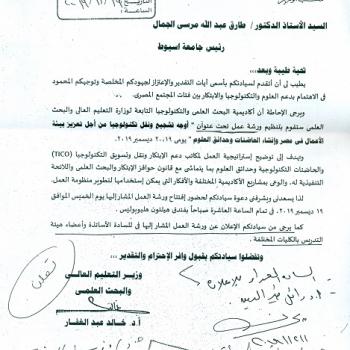 التاريخ
الساعة:
السيد الأستاذ الدكتور / طارق عبد الله مرسى الجمال
رئيس جامعة اسيوط
تحية طيبة وبعد،،،
يطيب لى أن أتقدم لسيادتكم بأسمى آيات التقدير والإعتزاز لجهودكم المخلصة وتوجيهكم المحمود
فى الاهتمام بدعم العلوم والتكنولوجيا والابتكار بين فئات المجتمع المصرى.
ويرجى الإحاطة أن أكاديمية البحث العلمى والتكنولوجيا التابعة لوزارة التعليم العالى والبحث
العلمى ستقوم بتنظيم ورشة عمل تحت عنوان " أوجه تشجيع ونقل تكنولوجيا من أجل تعزيز بيئة
الأعمال فى مصر وإنشاء الحاضنات وحدائق العلوم " يومى ١٩، ٢٠ ديسمبر ٢٠١٩.
ويهدف إلى توضيح إستراتيجية العمل لمكاتب دعم الابتكار ونقل وتسويق التكنولوجيا (TICO)
والحاضنات التكنولوجية وحدائق العلوم بما يتماشى مع قانون حوافز الإبتكار والبحث العلمى واللائحة
التنفيذية له، والوعى بمشاريع الأكاديمية المختلفة والأفكار التى يمكن إستخدامها لتطوير منظومة العمل.
لذا يسعدنى ويشرفنى دعوة سيادتكم لحضور إفتتاح ورشة العمل المشار إليها يوم الخميس الموافق
١٩ ديسمبر ٢٠١٩، فى تمام الساعة العاشرة صباحاً بفندق جينات هليوبوليس.
كما يرجى من سيادتكم الإعلان عن ورشة العمل المشار إليها فى للسادة الأساتذة وأعضاء هيئة
التدريس بالكليات المختلفة.
وتفضلوا سيادتكم بقبول وافر الإحترام والتقدير ،،،
وزيـر التعليم العـالى
والبحث العلمى
أ.د. خالد عبد الغفار